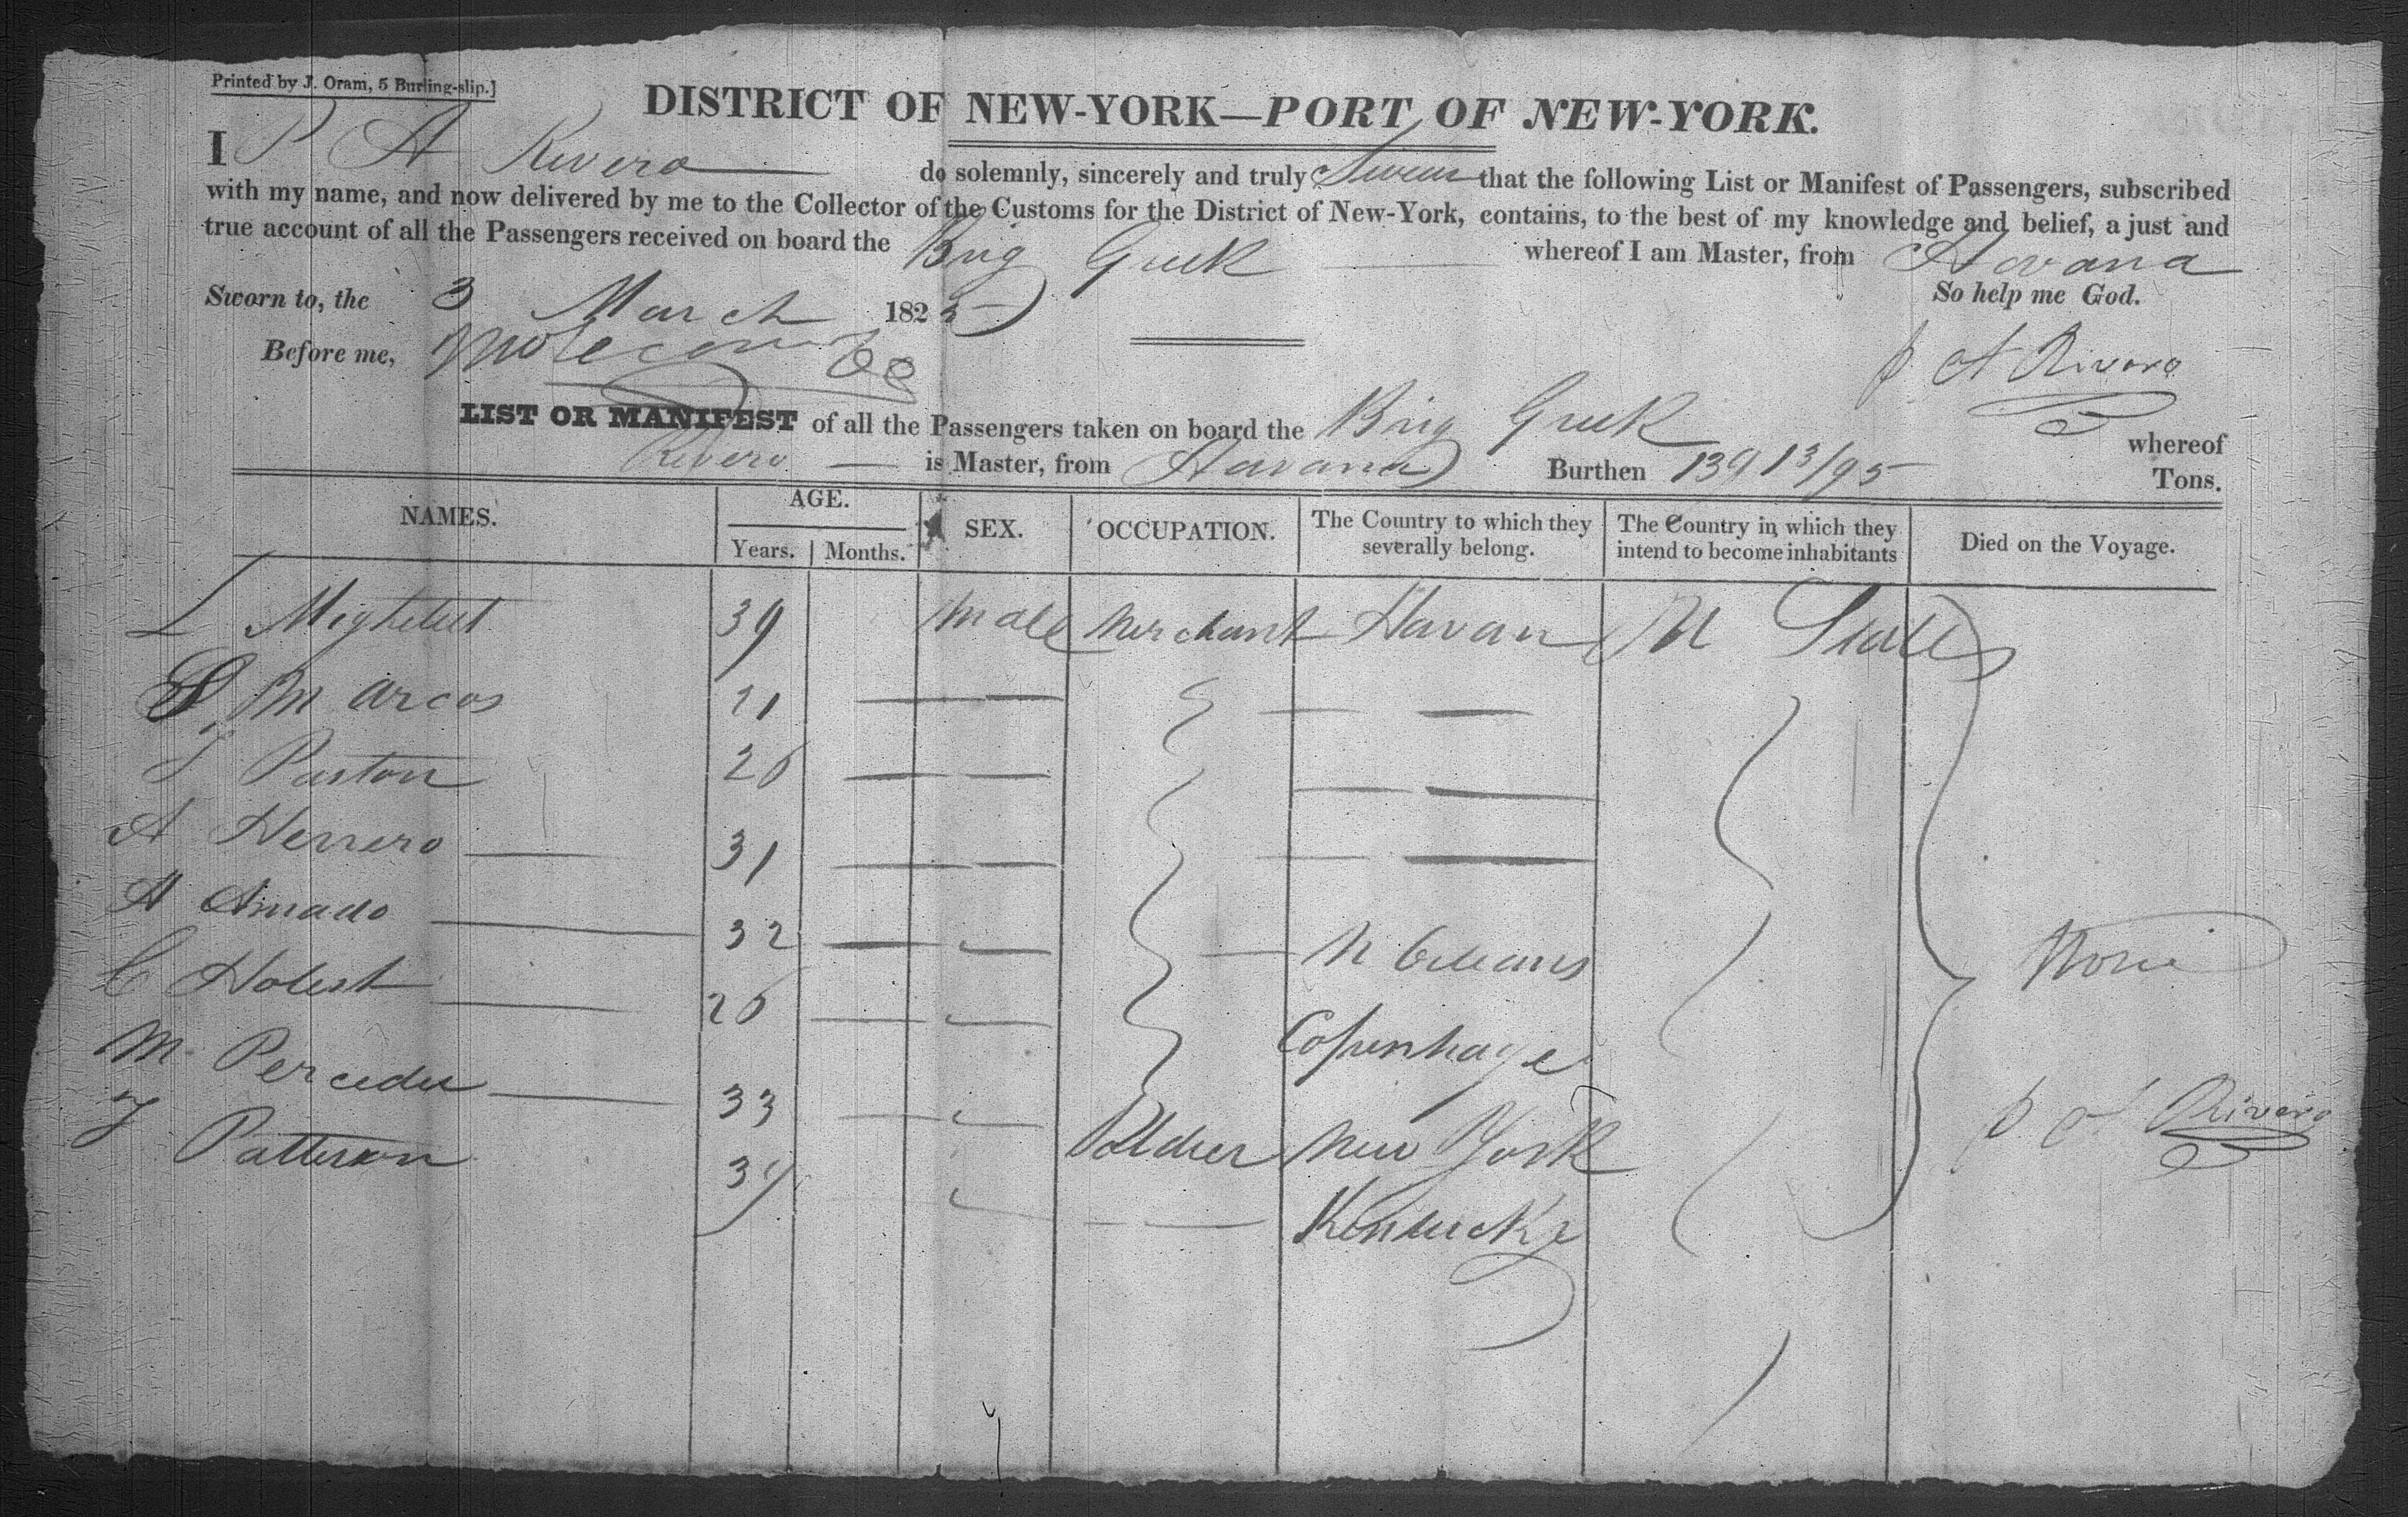 Printed by J. Oram, 5 Burling-slip.]
DISTRICT OF NEW-YORK—PORT OF NEW-YORK.
I P A Rivero do solemnly, sincerely and truly Swear that the following List or Manifest of Passengers, subscribed
with my name, and now delivered by me to the Collector of the Customs for the District of New-York, contains, to the best of my knowledge and belief, a just and
true account of all the Passengers received on board the Brig Greek whereof I am Master, from Havana
Sworn to, the 3 March 182 So help me God.
Before me,
P A Rivero
LIST OR MANIFEST of all the Passengers taken on board the Brig Greek whereof
Rivero is Master, from Havana Burthen 139 13/95 Tons.
NAMES. AGE. Years. Months. SEX. OCCUPATION. The Country to which they severally belong. The Country in which they intend to become inhabitants Died on the Voyage.
L 39 Male Merchant Havana U States
Marcos 21
J Paston 26
A Herrero 31
A Amado 32 N Orleans
C Holest 26 Copenhage None
M 33 New York P A Rivero
J Patterson 39 Kentucke